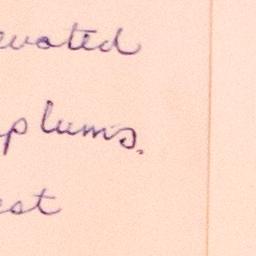 evoted
plums.
est